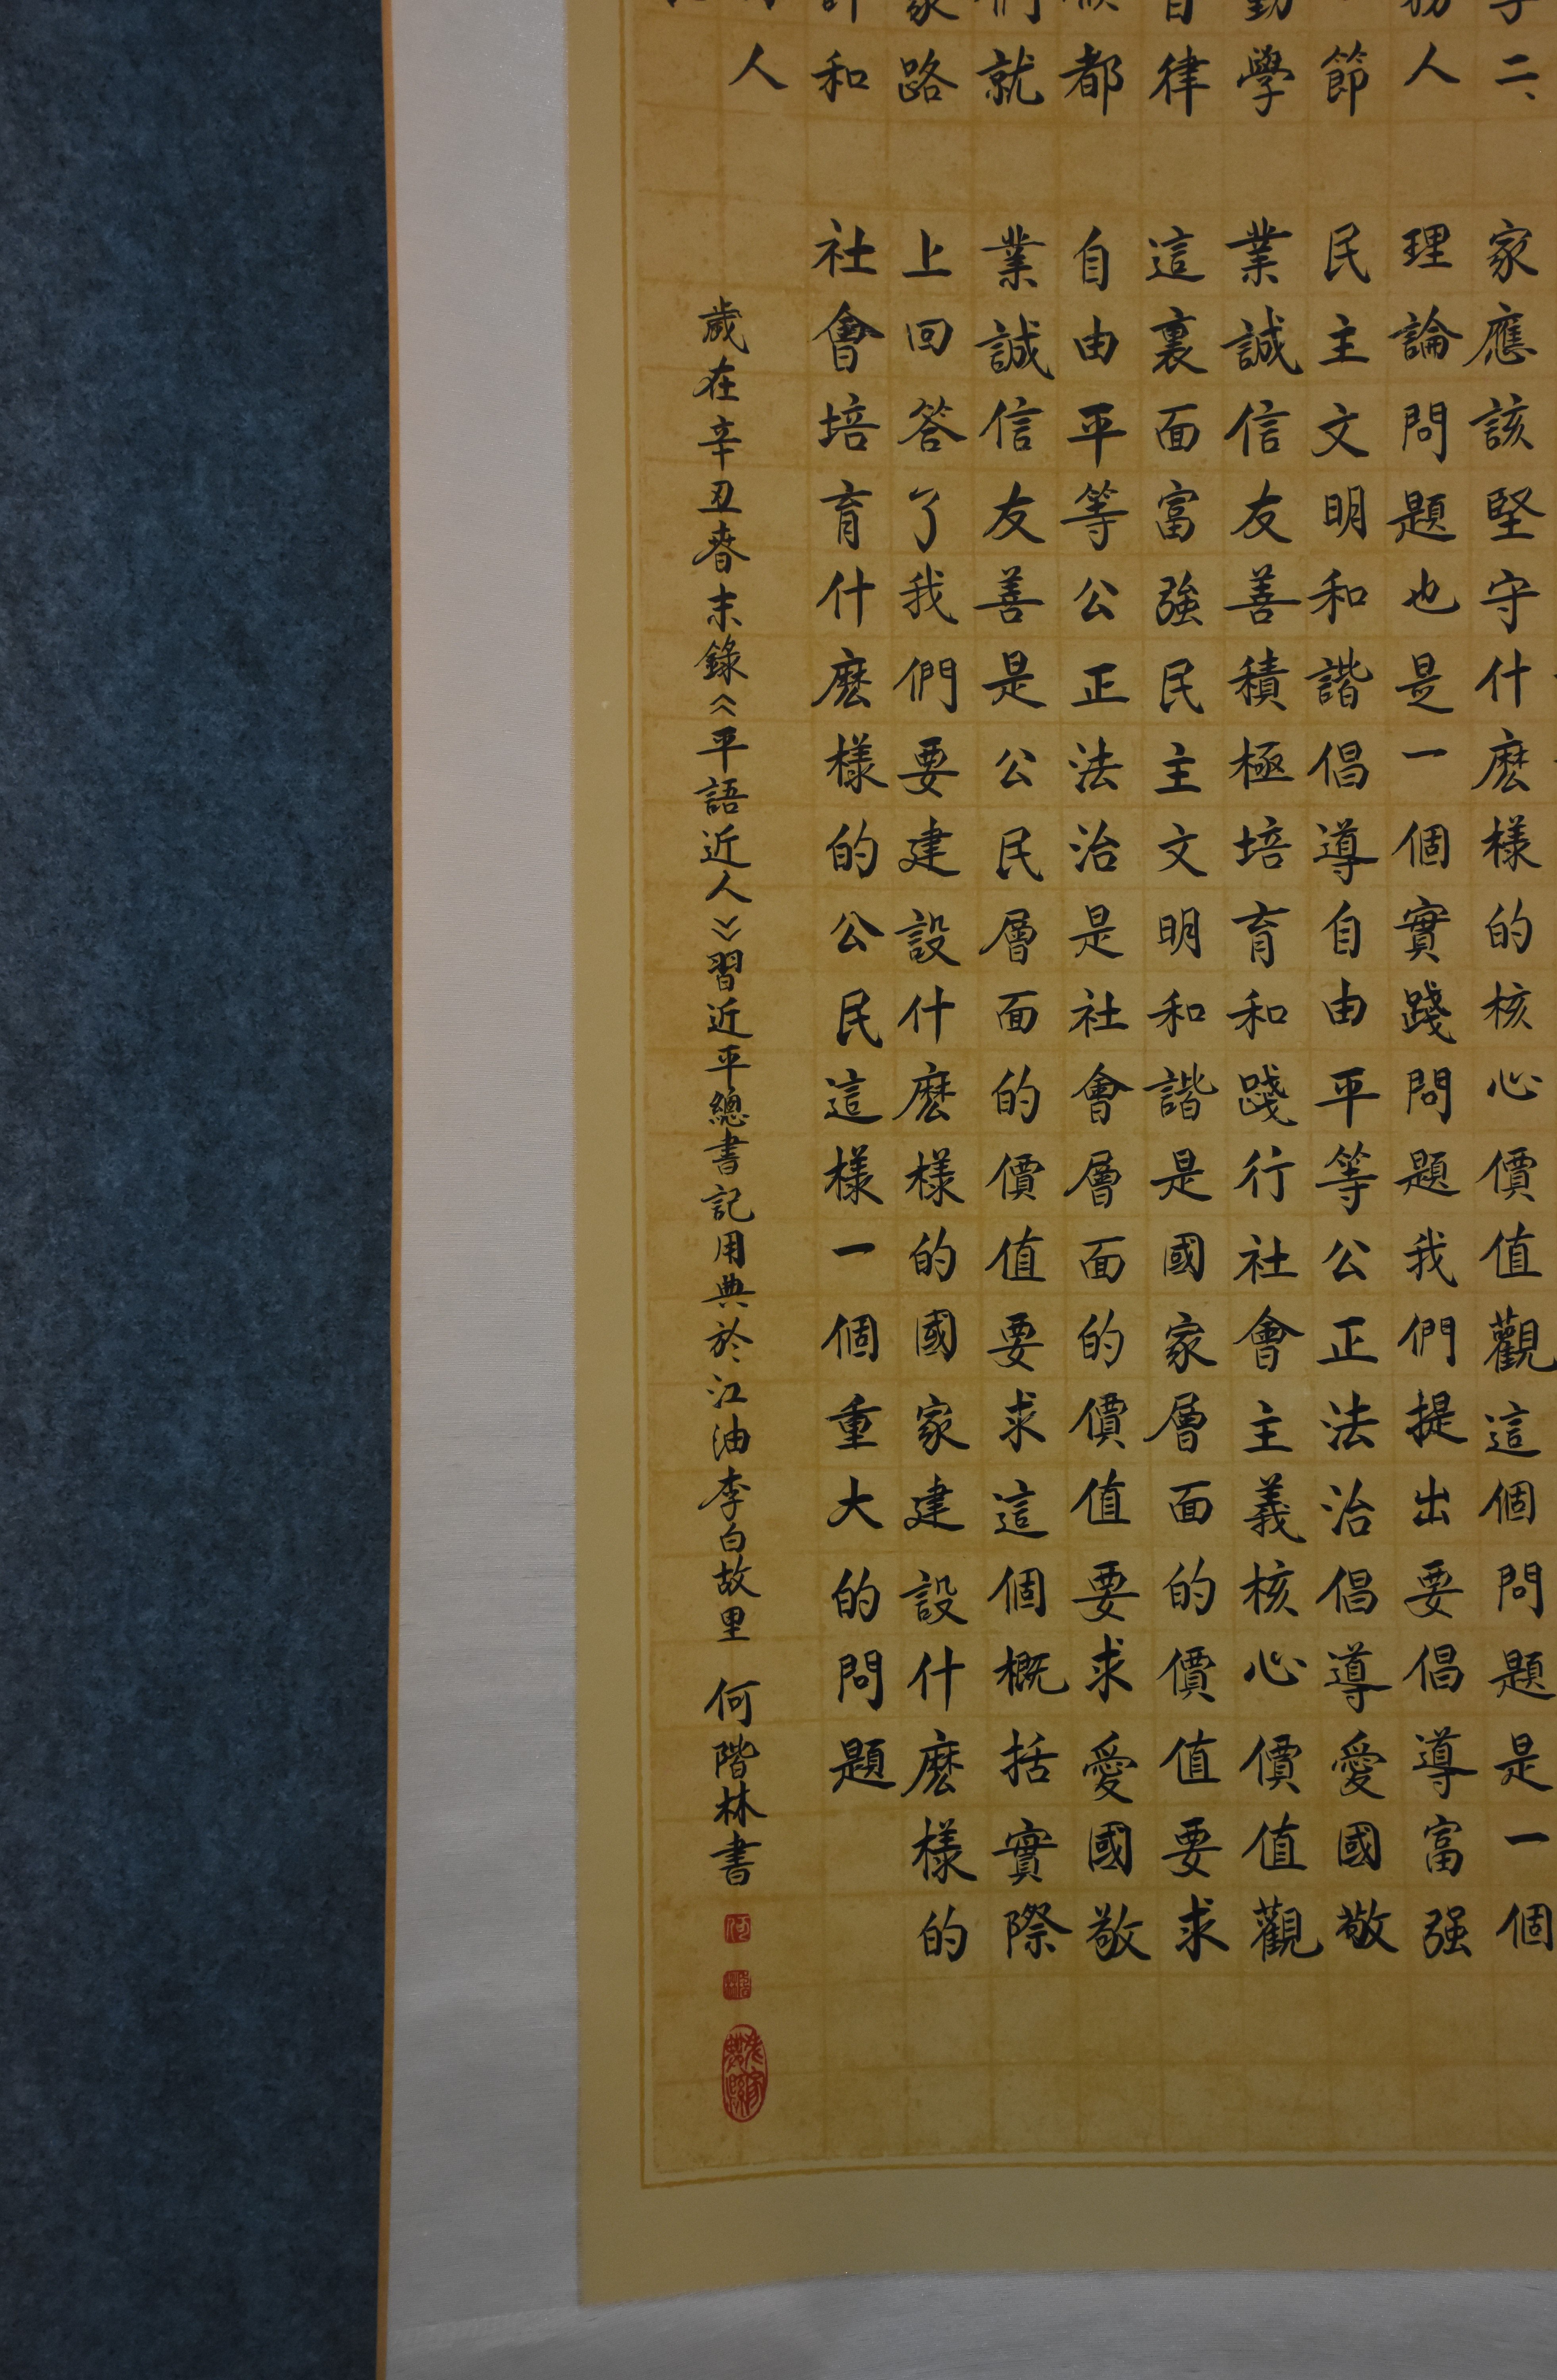 二、
人
節
學
律
都
就
路
和
人
家應該堅守什麽樣的核心價值觀這個問題是一個
理論問題也是一個實踐問題我們提出要倡導富强
民主文明和諧倡導自由平等公正法治倡導愛國敬
業誠信友善積極培育和踐行社會主義核心價值觀
這裏面富強民主文明和諧是國家層面的價值要求
自由平等公正法治是社會層面的價值要求愛國敬
業誠信友善是公民層面的價值要求這個概括實際
上回答了我們要建設什麽樣的國家建設什麽樣的
社會培育什麽樣的公民這樣一個重大的問題
歲在辛丑春末錄《平語近人》習近平總書記用典於江油李白故里 何階林書
何